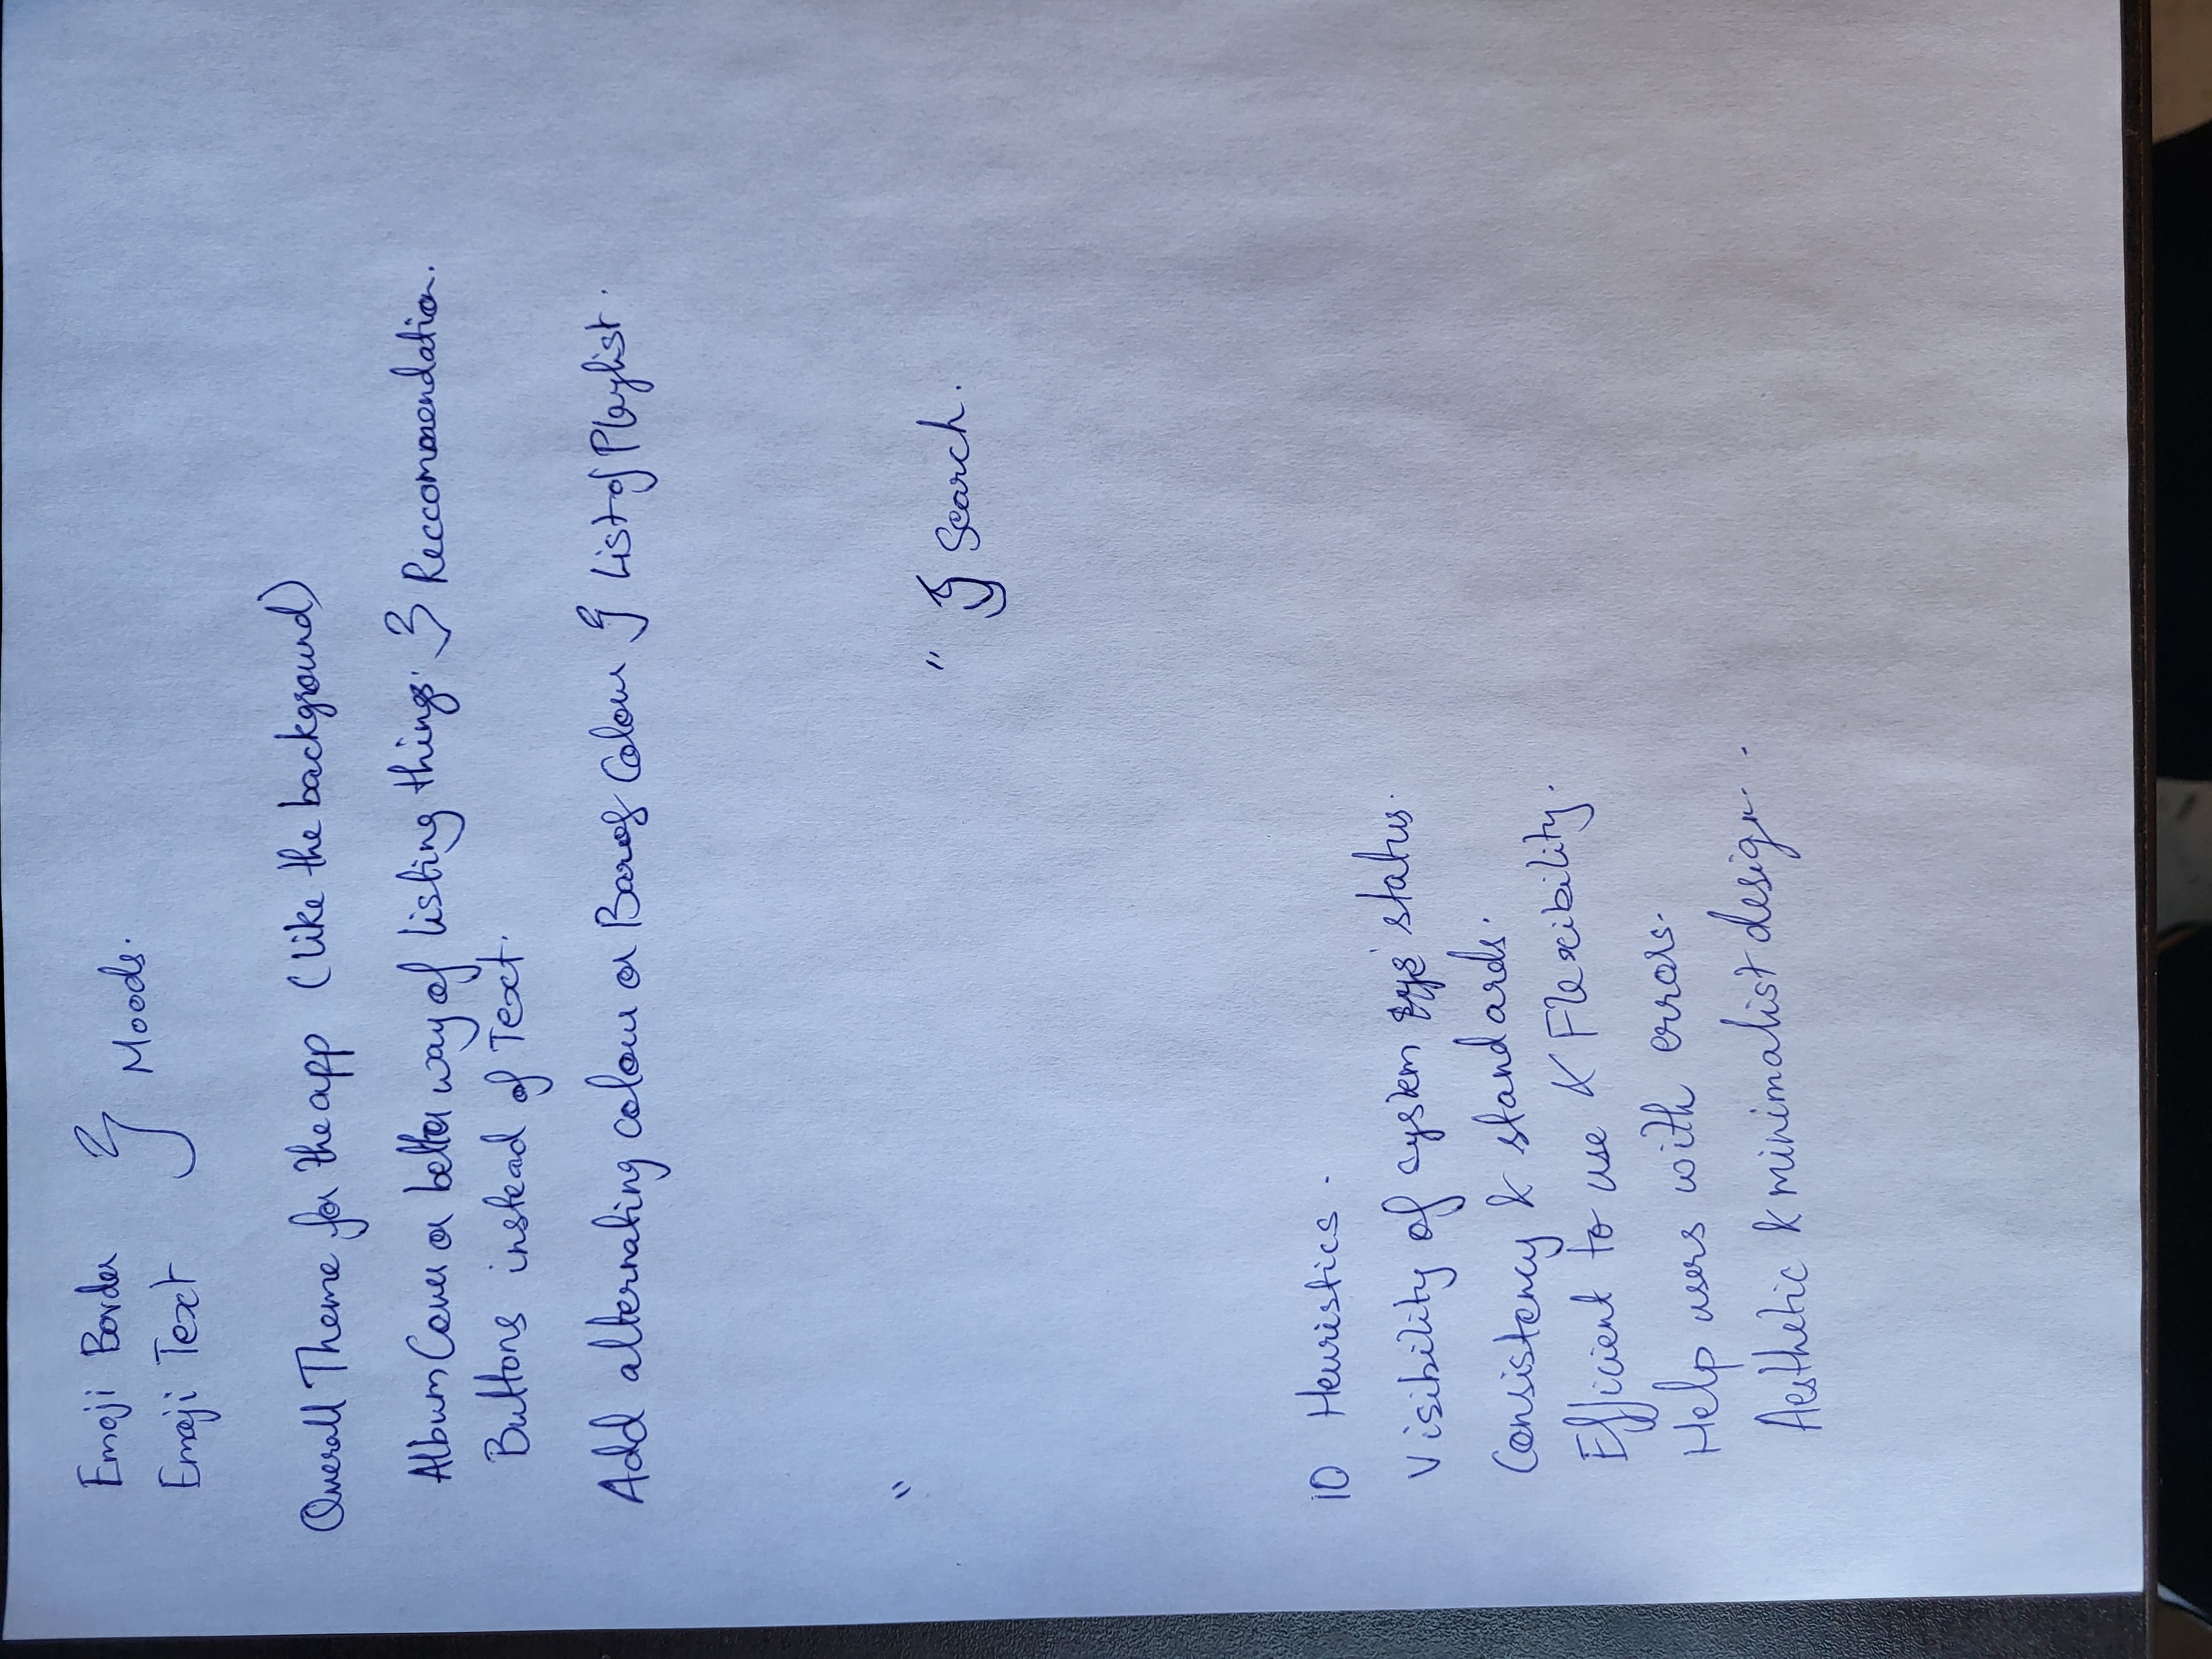 Emoji Border } Moods.
Emoji Text
Overall Theme for the app (like the background)
Album Cover or better way of listing things. } Reccommendation.
Buttons instead of Text.
Add alternating colour or Bar of Colour } List of Playlist.
" " } Search.
10 Heuristics.
Visibility of system status.
Consistency & standards.
Efficient to use & Flexibility.
Help users with errors.
Aesthetic & minimalist design.